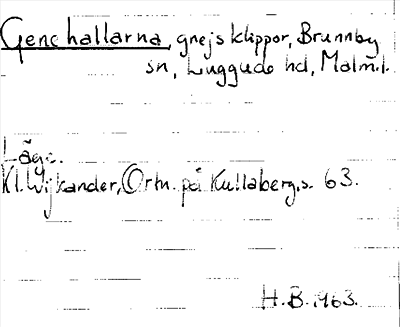 Genehallarna, gnejsklippor, Brunnby
sn, Luggude hd, Malm.l.
Läge.
Kl. Wijkander, Ortn. på Kullaberg, s. 63.
H.B. 1963.